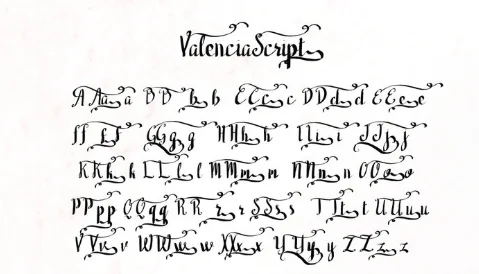 ValenciaScript
A A a a B B b b C C c c D D d d E E e e
F F f f G G g g H H h h I I i i J J j j
K K k k L L l l M M m m N N n n O O o o
P P p p Q Q q q R R r r S S s s T T t t U U u u
V V v v W W w w X X x x Y Y y y Z Z z z